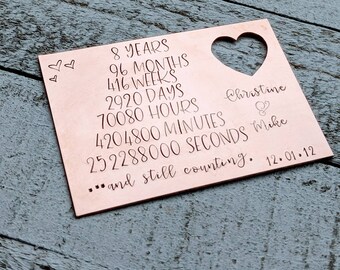 8 YEARS
96 MONTHS
416 WEEKS
2920 DAYS
70080 HOURS
4204800 MINUTES
252288000 SECONDS
...and still counting.
Christine
&
Mike
12.01.12